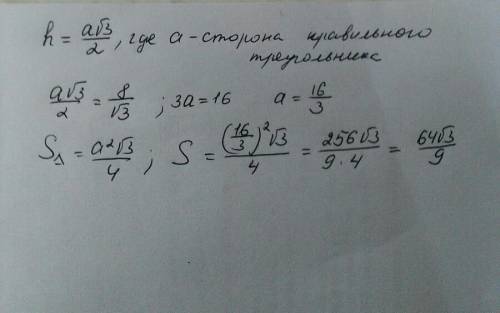 h = a√3/2, где a - сторона правильного
треугольника
a√3/2 = 8/√3 ; 3a = 16 a = 16/3
S△ = a²√3/4 ; S = (16/3)²√3/4 = 256√3/9·4 = 64√3/9